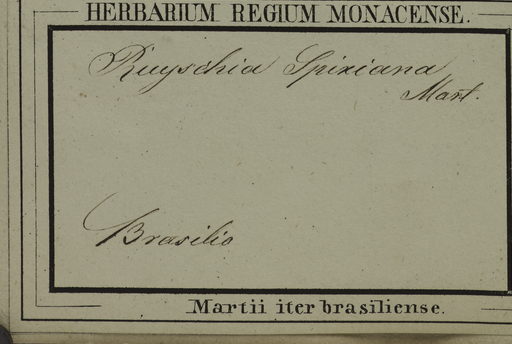 HERBARIUM REGIUM MONACENSE.
Ruyschia Spixiana
Mart.
Brasilio
Martii iter brasiliense.